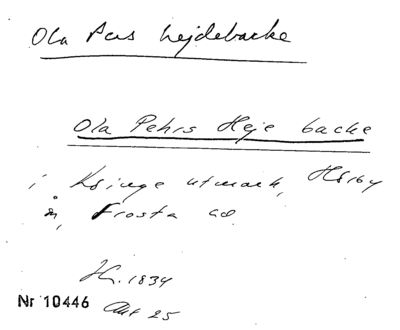 Ola Pers hejdebacke
Ola Pehrs Heje backe
i Ksinge utmark, Hörby
Frosta hd.
1834
Nr 10446 Akt 25